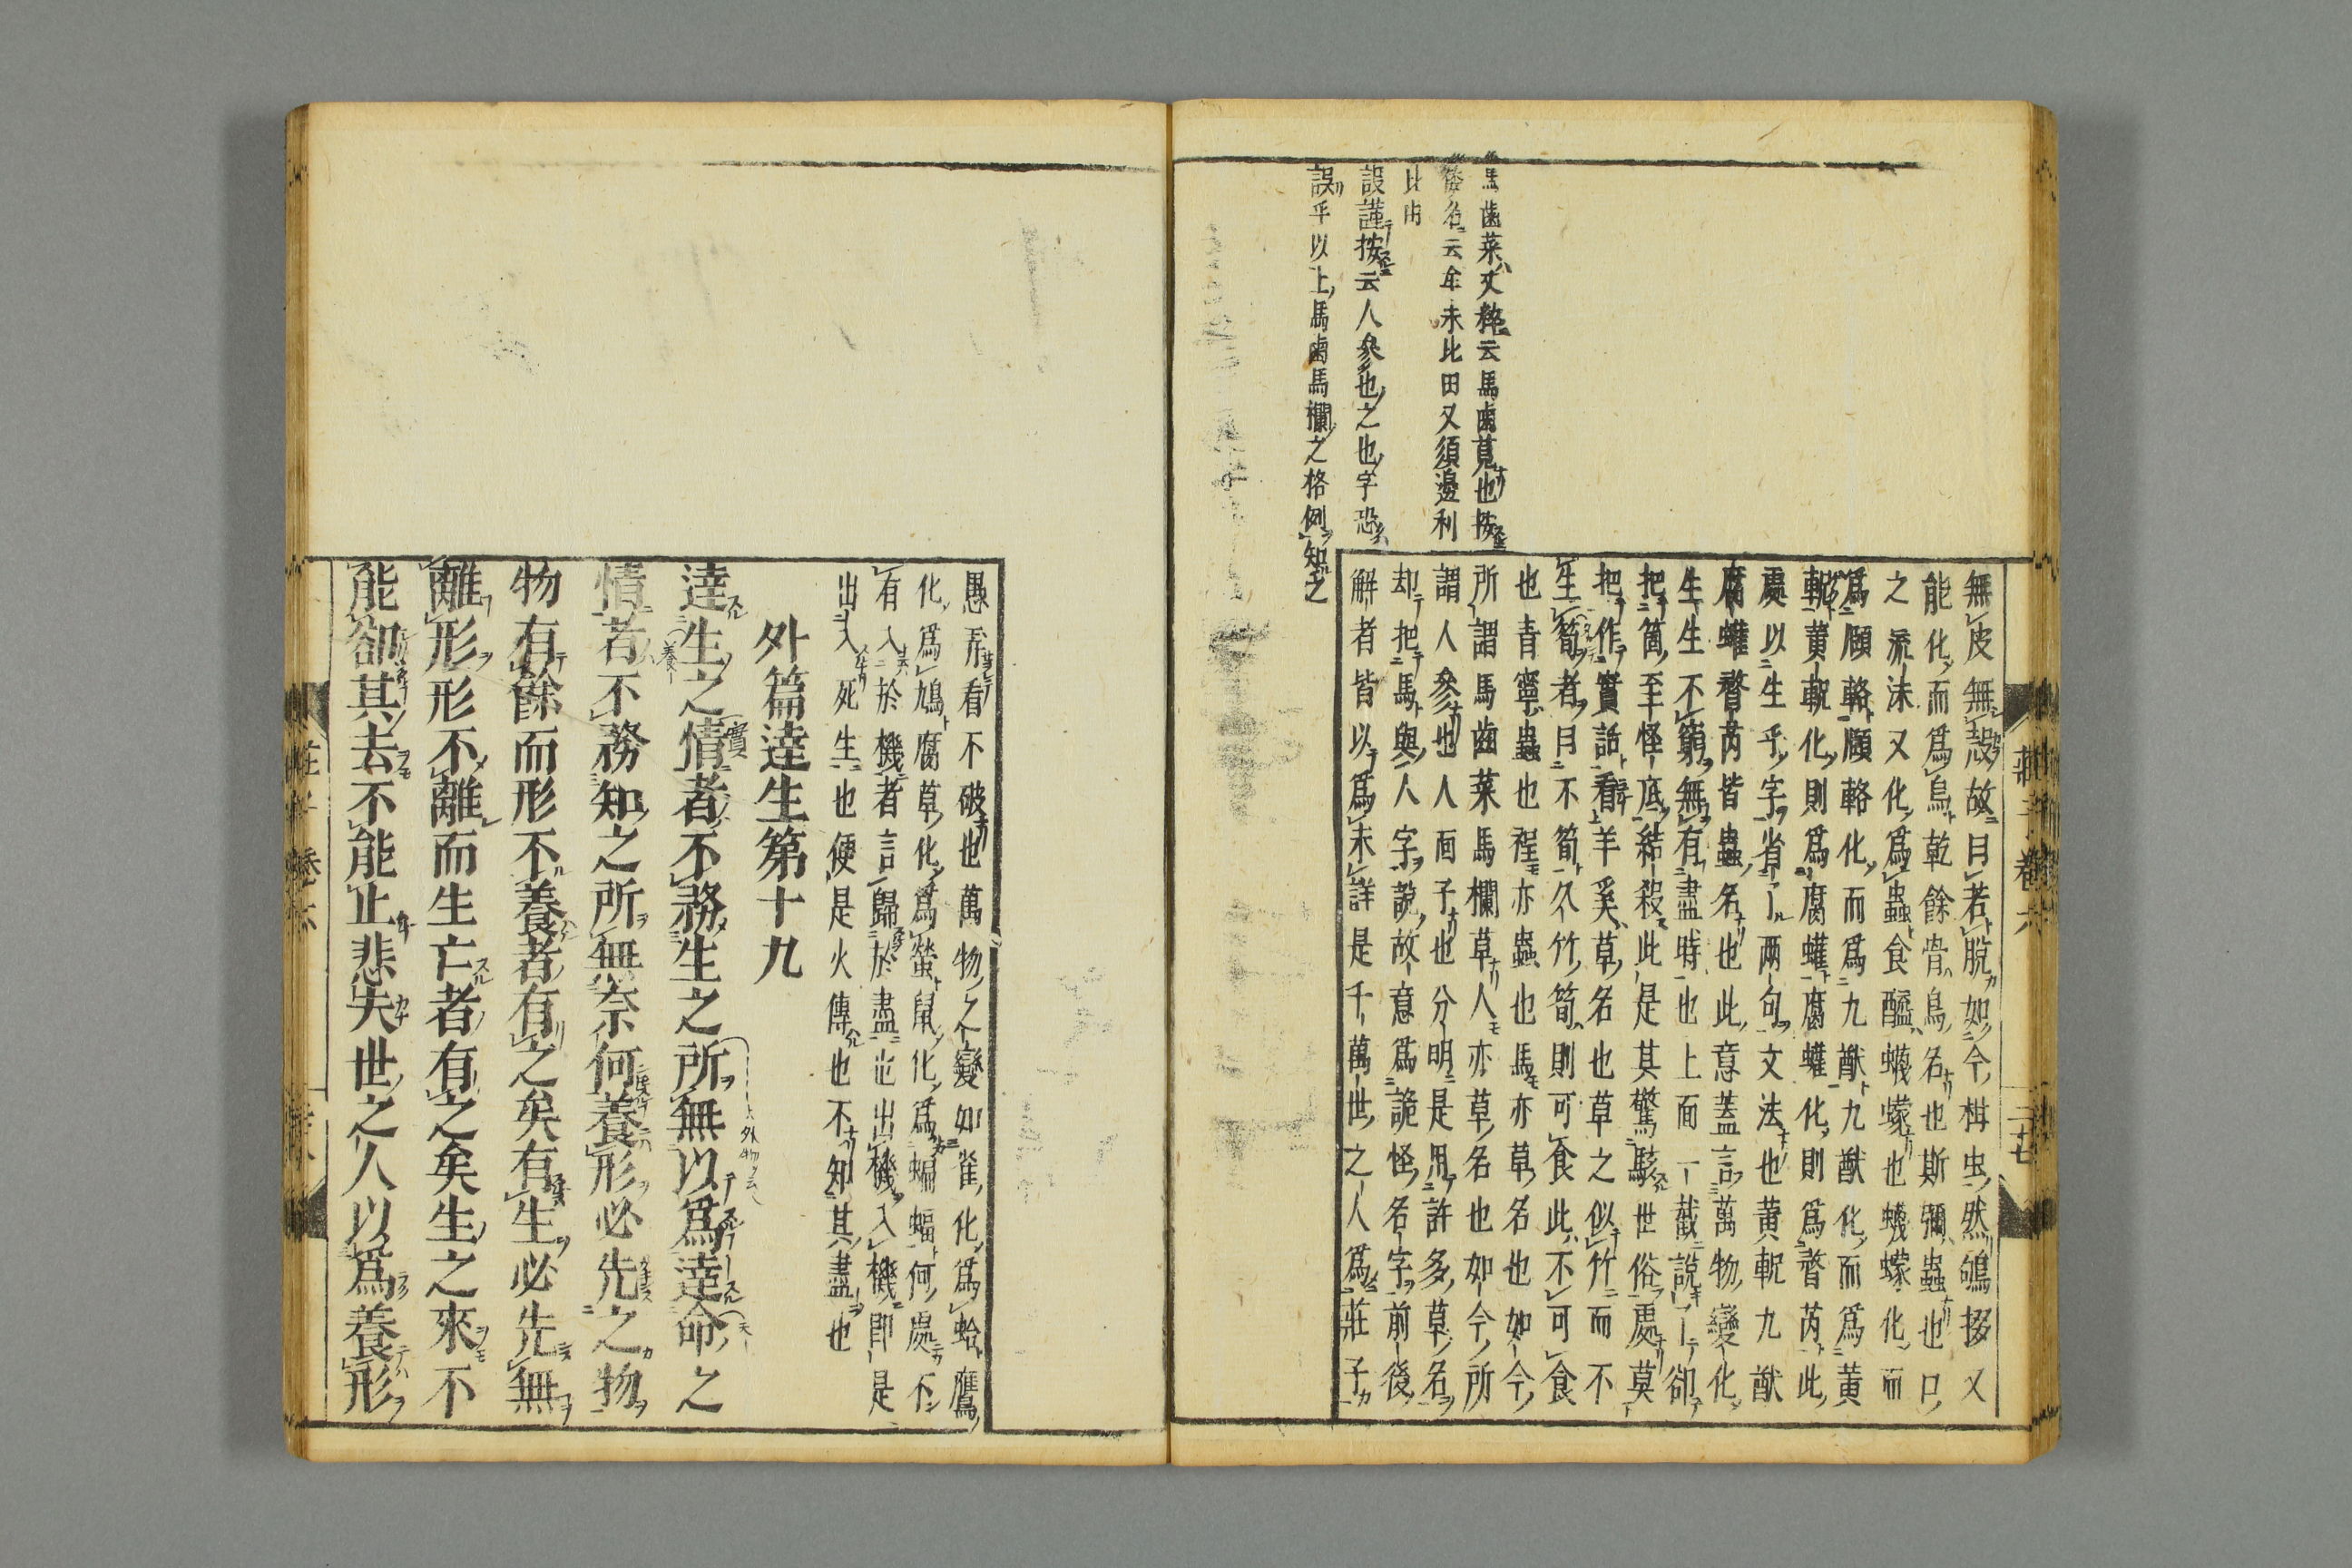 馬歯菜文粋云馬歯莧也按
倭名云牟末比田又須邊利
比由
設謹按云人參也之也字恐
誤乎以上馬歯馬欄之格例知之
無皮無殼故曰若脫如今樹虫然鴝掇又
能化而爲鳥乾餘骨鳥名也斯彌蟲也口
之流沫又化爲蟲食醯蠛蠓也蠛蠓化而
爲頤輅頤輅化而爲九猷九猷化而爲黃
軦黃軦化則爲腐蠸腐蠸化則爲瞀芮此
處以生乎字省了兩句文法也黃軦九猷
腐蠸瞀芮皆蟲名也此意蓋言萬物變化
生生不窮無有盡時也上面一截說了卻
把箇至怪底結殺此是其驚駭世俗處莫
把作實話看羊奚草名也草之似竹而不
生筍者曰不筍久竹筍則可食此不可食
也青寧蟲也程亦蟲也馬亦草名也如今
所謂馬齒菜馬欄草人亦草名也如今所
謂人參也人面子也分明是用許多草名
却把馬與人字說故意爲詭怪名字前後
解者皆以爲未詳是千萬世之人爲莊子
莊子卷六
二十七
愚弄看不破也萬物之變如雀化爲蛤鷹
化爲鳩腐草化爲螢鼠化爲蝙蝠何處不
有入於機者言歸於盡也出機入機即是
出入死生也便是火傳也不知其盡也
外篇達生第十九
達生之情者不務生之所無以爲達命之
情者不務知之所無奈何養形必先之物
物有餘而形不養者有之矣有生必先無
離形形不離而生亡者有之矣生之來不
能卻其去不能止悲夫世之人以爲養形